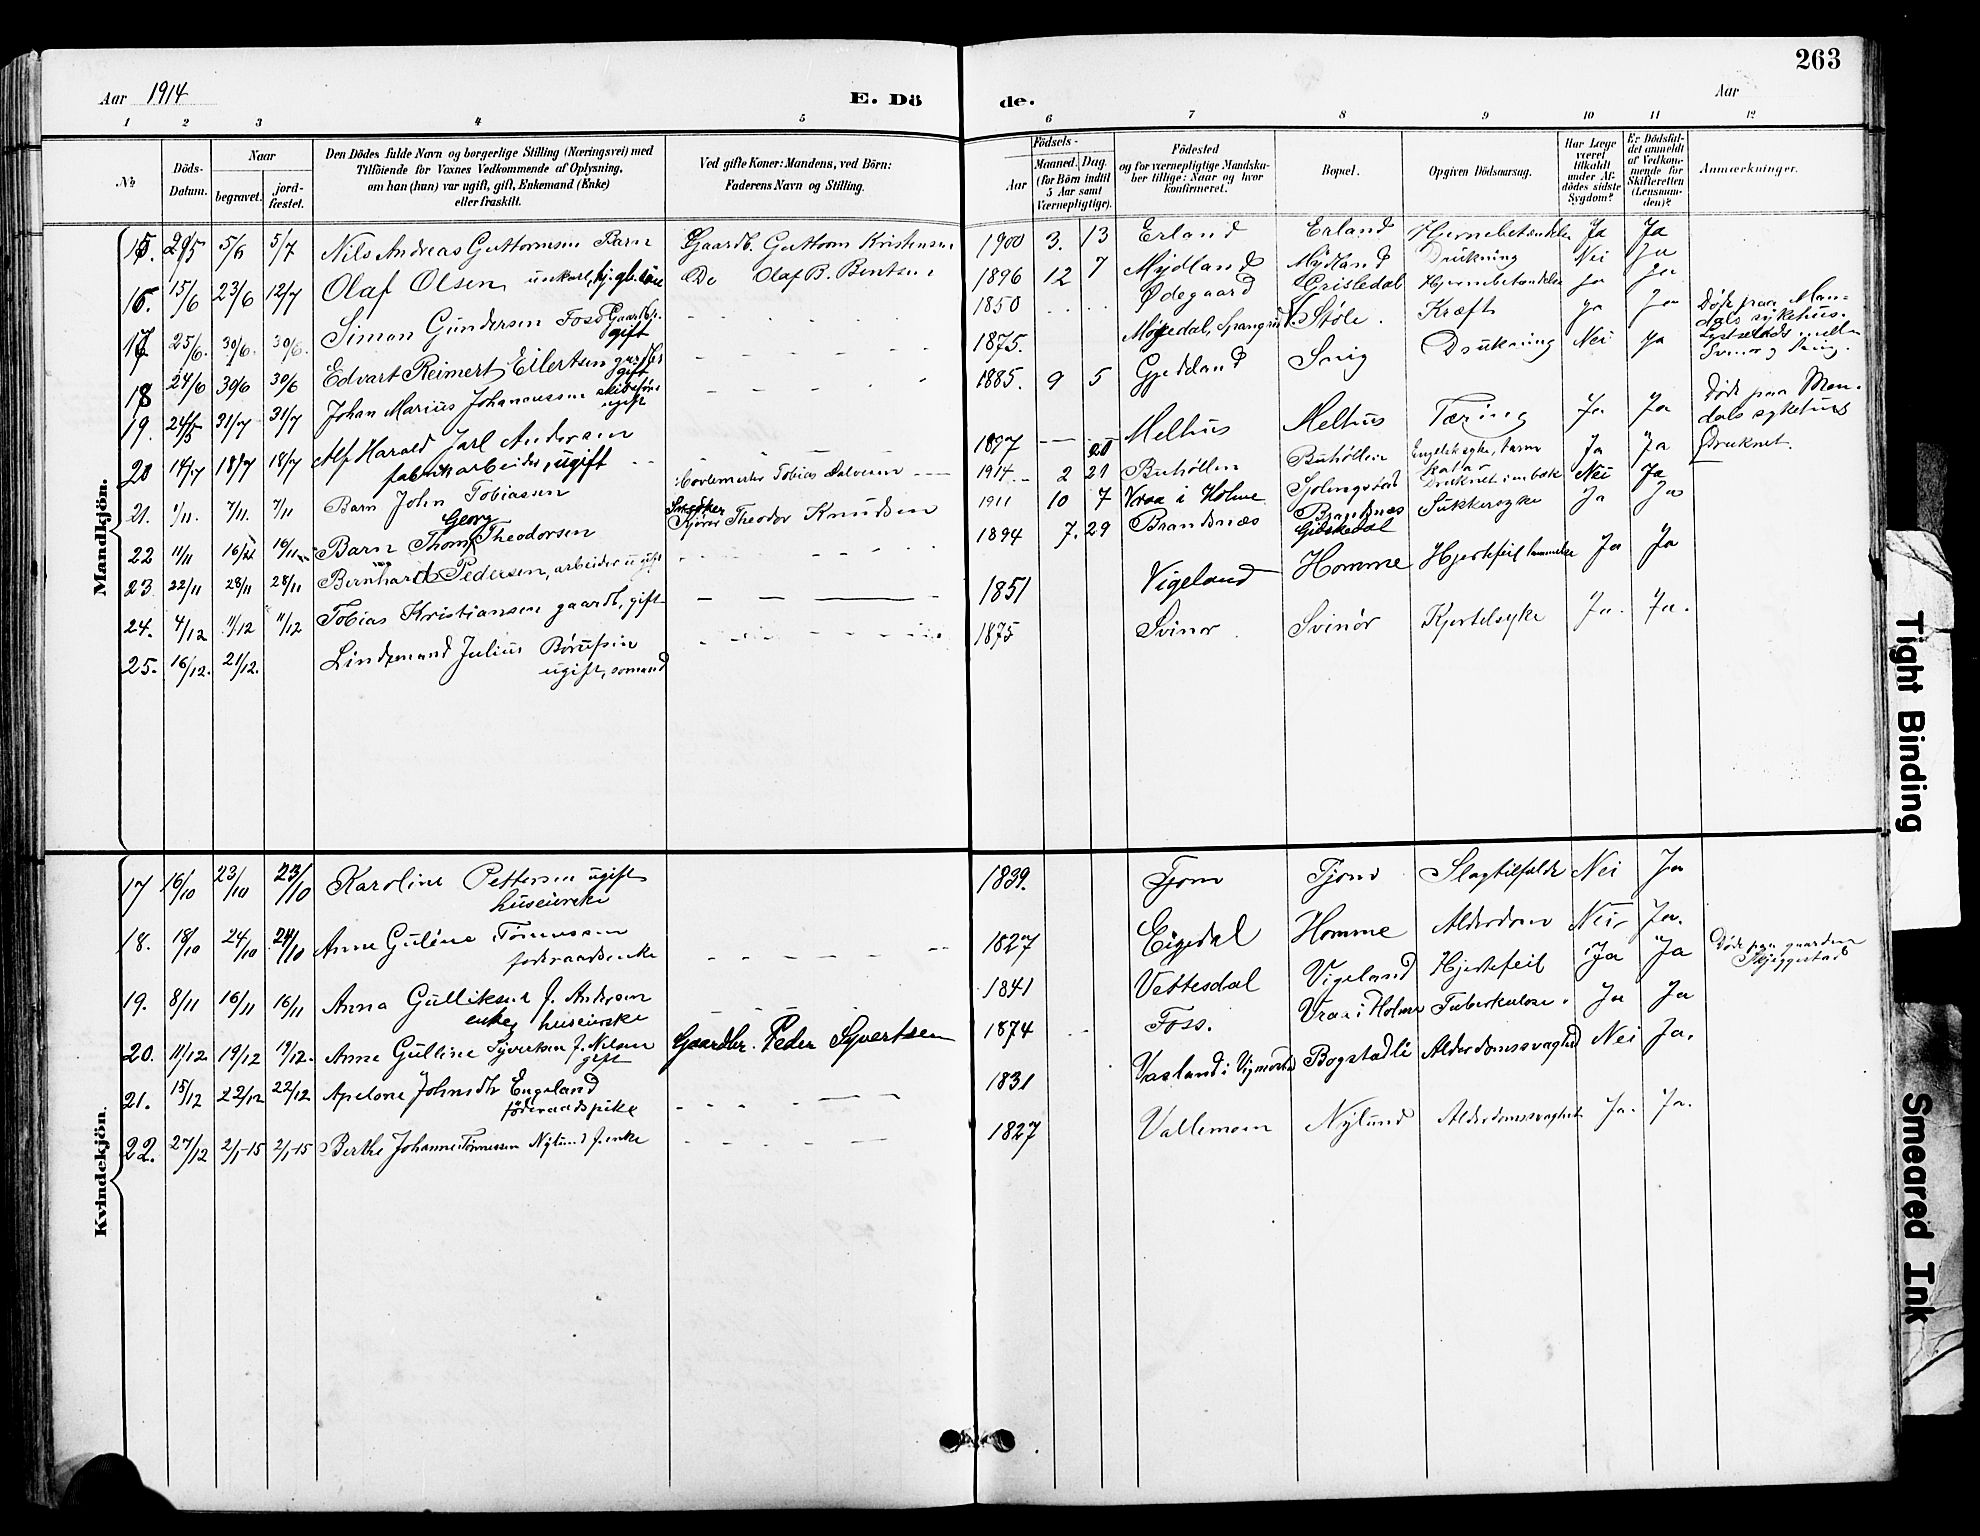 263
Aar 1914
E. Dö
de.
Aar
1 2 3 4 5 6 7 8 9 10 11 12
No
Döds-Datum.
Naar
begravet.
jord-fæstet.
Den Dödes fulde Navn og borgerlige Stilling (Næringsvei) med
Tilföiende for Voxnes Vedkommende af Oplysning,
om han (hun) var ugift, gift, Enkemand (Enke)
eller fraskilt.
Ved gifte Koner: Mandens, ved Börn:
Faderens Navn og Stilling.
Födsels-
Aar
Maaned. Dag.
(for Börn indtil
5 Aar samt
Værnepligtige).
Födested
og for værnepligtige Mandska-
ber tillige: Naar og hvor
konfirmeret.
Bopæl.
Opgiven Dödsaarsag.
Har Læge
været
tilkaldt
under Af-
dödes sidste
Sygdom?
Er Dödsfal-
det anmeldt
af Vedkom-
mende for
Skifteretten
(Lensman-
den)?
Anmærkninger.
Mandkjön.
15. 29/5 5/6 5/7 Nils Andreas Guttormsen Barn Gaardb. Guttorm Kristensen 1900 3. 13 Erland Erland Hjernebetændelse Ja Ja
16. 15/6 23/6 12/7 Olaf Olsen ungkarl, Do Olaf B. Bentsen 1896 12 7 Mydland Mydland Drukning Nei Ja
17 25/6. 30/6. 30/6. Simon Gundersen Foss Gaardbr. gift 1850 Ødegaard Grisledal Hjernebetændelse Ja Ja
18 24/6 30/6 30/6 Edvart Reimert Eilertsen gaardbr gift 1875. Støle. Kræft ja Ja Døde paa Man-
dals sykehus.
19. 31/7 31/7 Johan Marius Johannessen ugift 1885. 9 5 Gjeddland Snig Drukning Nei ja
20 14/7 18/7 18/7 Alf Harald Jarl Andersen
fabrikarbeider, ugift 1897 Melhus Melhus Tæring Ja Ja Døde paa Man-
dals sykehus
21. 1/11. 7/11. 7/11 Barn John Tobiassen Tobias 1914 2 21 Buhøllen Buhøllen Engelsk syke, tarmkatar Ja Ja
22 11/11 16/11 16/11 Barn Thom Georg Theodorsen Sagsøker Theodor Knudsen 1911 10 7 Vraa i Holme Druknet i en bæk Nei Ja Druknet.
23 22/11 28/11 28/11 Bernhard Pedersen, arbeider ugift 1894 7. 29 Brandsnæs Brandsnæs Gidskedal Sukkersyke Ja Ja
24. 4/12 11/12 11/12 Tobias Kristiansen gaardb, gift 1851 Vigeland Homme Hjertefeil Ja Ja
25. 16/12. 21/12. Lindemand Julius Børufsin
ugift, sømand 1875 Svinør Svinør Kjertelsyke Ja. Ja.
Kvindekjön.
17 16/10 23/10 23/10 Karoline Pettersen ugift
huseierske 1839. Tjom Tjom Slagtilfælde Nei Ja
18. 18/10 24/10 24/10 Anne Guline Tönnessen
foderaadsenke 1827 Eigedal Homme Alderdom Nei, Ja.
19. 8/11 16/11 16/11 Anna Gulliksen f. Andersen
enke, huseierske 1841 Vettesdal Vigeland Hjertefeil Ja Ja Døde paa gaarden
Skjeggestad
20. 11/12 19/12 19/12. Anne Gulline Syvertsen f. Nilsen
gift Gaardbr. Peder Syvertsen 1874 Foss. Vraa i Holme Tuberkulose. Ja Ja
21. 15/12 22/12 22/12 Apelone Johnsdtr Engeland
föderaadspike 1831 Vasland i Vigmostad Bogstadli Alderdomssvaghed Nei Ja.
22. 27/12 2/1-15 2/1-15 Berthe Johanne Tönnessen Nylund f. enke 1827 Vallemoen Nylund Alderdomssvaghet Ja. Ja.
Tight Binding
Smeared Ink